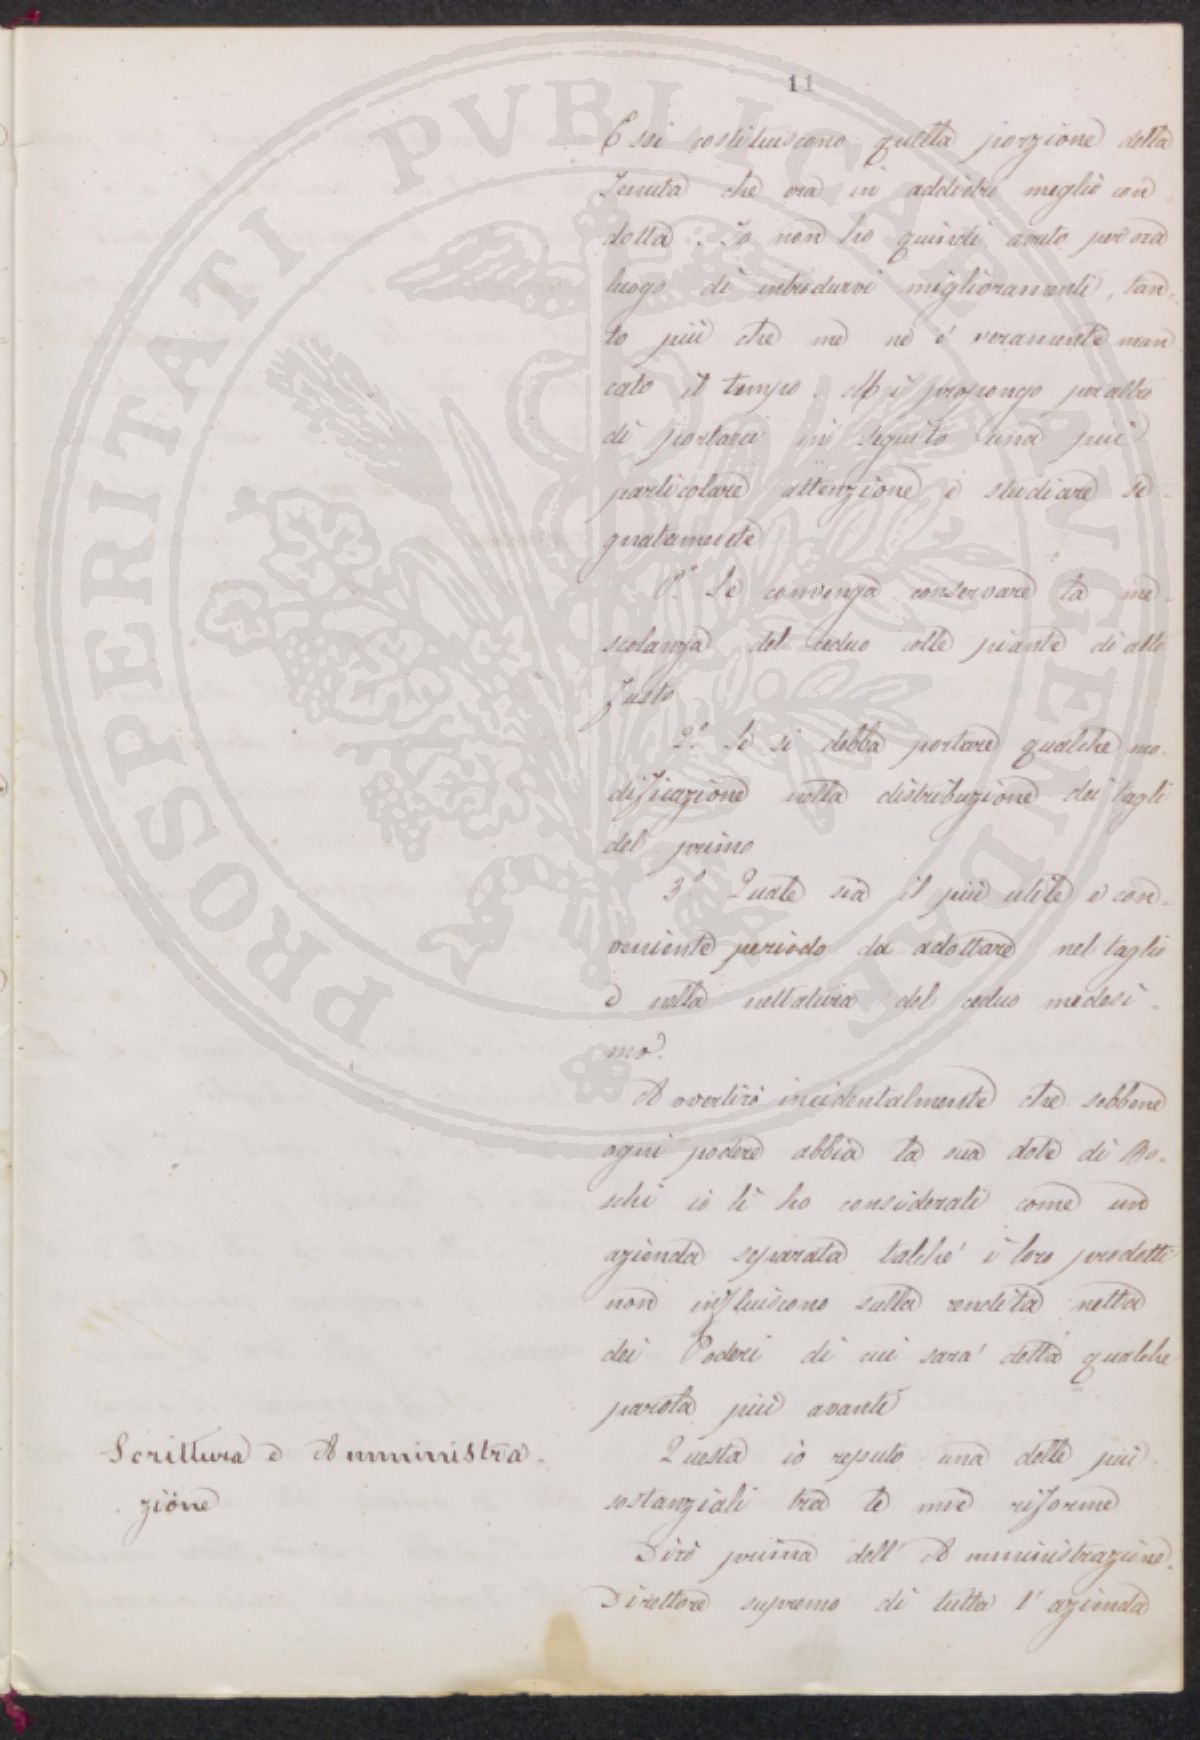 11
Essi costituiscono quella porzione della
Tenuta che era in addietro meglio con
dotta. Io non ho quindi avuto per ora
luogo di introdurvi miglioramenti, tan-
to più che me ne é veramente man
cato il tempo. Mi propongo peraltro
di portarci in seguito una più
particolare attenzione e studiare se-
gnatamente
1.° Se convenga conservare la me-
scolanza del ceduo colle piante di alto
fusto
2.° Se si debba portare qualche mo-
dificazione nella distribuzione dei tagli
del primo
3.° Quale sia il più utile e con-
veniente periodo da adottare nel taglio
e nella nettatura del ceduo medesi-
mo.
Avvertirò incidentalmente che sebbene
ogni podere abbia la sua dote di Bo-
schi io li ho considerati come un
azienda separata talché i loro prodotti
non influiscono sulla rendita netta
dei Poderi di cui sará detta qualche
parola più avanti
Scrittura e Amministra-
zione
Questa io reputo una delle più
sostanziali tra le mie riforme
Dirò prima dell'Amministrazione.
Direttore supremo di tutta l'azienda
PROSPERITATI PVBLICAE AVGENDAE